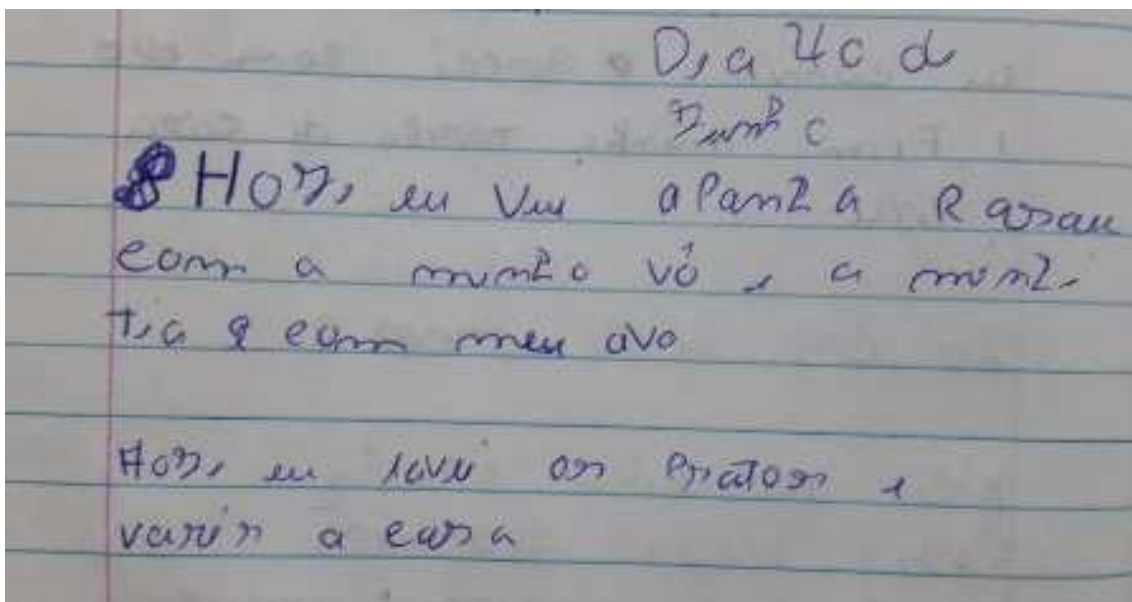 Dia 4 d
Hoz, eu Vu a Panha Rasau
com a minha vó e a minh
tia e com meu avo
Hoz, eu lavei os Pratos e
varir a casa